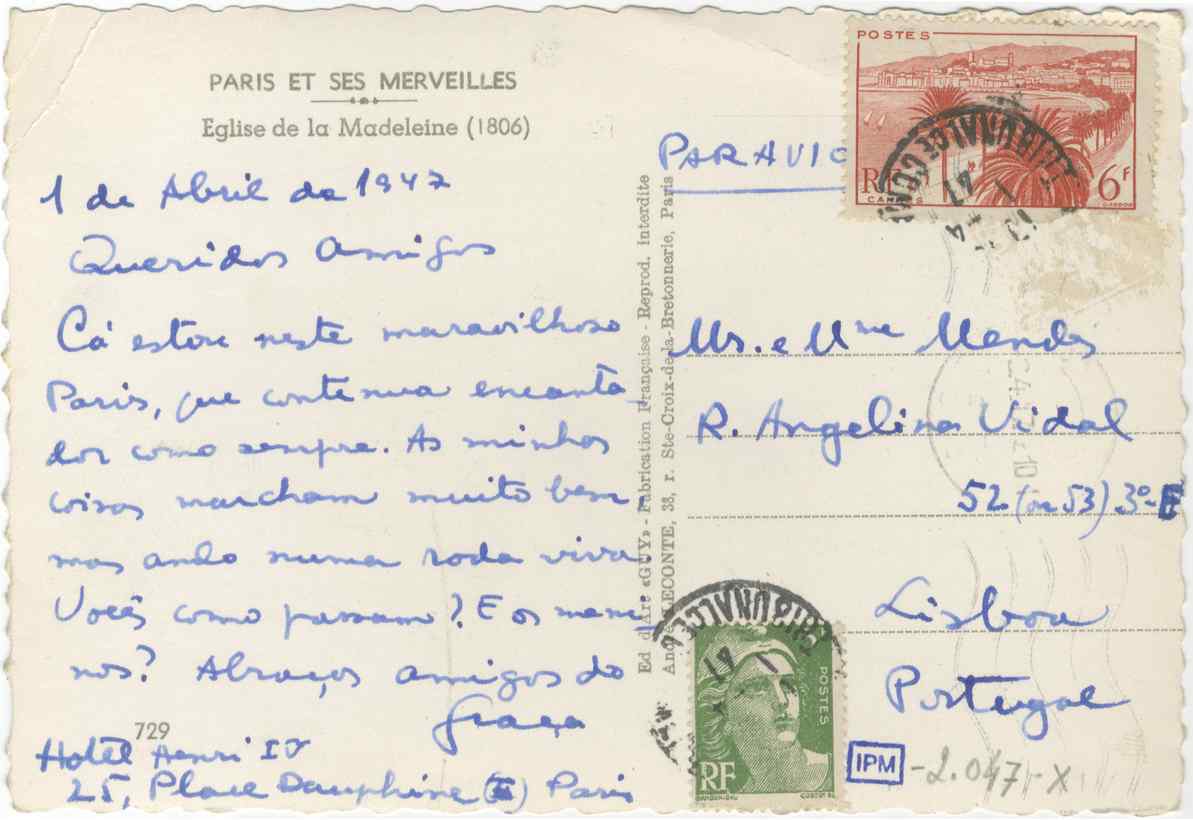 PARIS ET SES MERVEILLES
Eglise de la Madeleine (1806)
1 de Abril de 1947
Queridos Amigos
Cá estou neste maravilhoso
Paris, que continua encanta-
dor como sempre. As minhas
coisas marcham muito bem
mas ando numa roda viva
Vocês como passam? E os meni-
nos? Abraços amigos do
Graça
729
Hotel Henri IV
25, Place Dauphine Paris
Ed d'Art «GUY» - Fabrication Française - Reprod. interdite
LECONTE, 38, r. Ste-Croix-de-la-Bretonnerie, Paris
PAR AVIO
POSTES
RF
CANNES
6F
GANDON
Mr. e Mme Mendes
R. Angelina Vidal
52 (ou 53) 3º-E
Lisboa
Portugal
POSTES
RF
IPM
-2.047-X